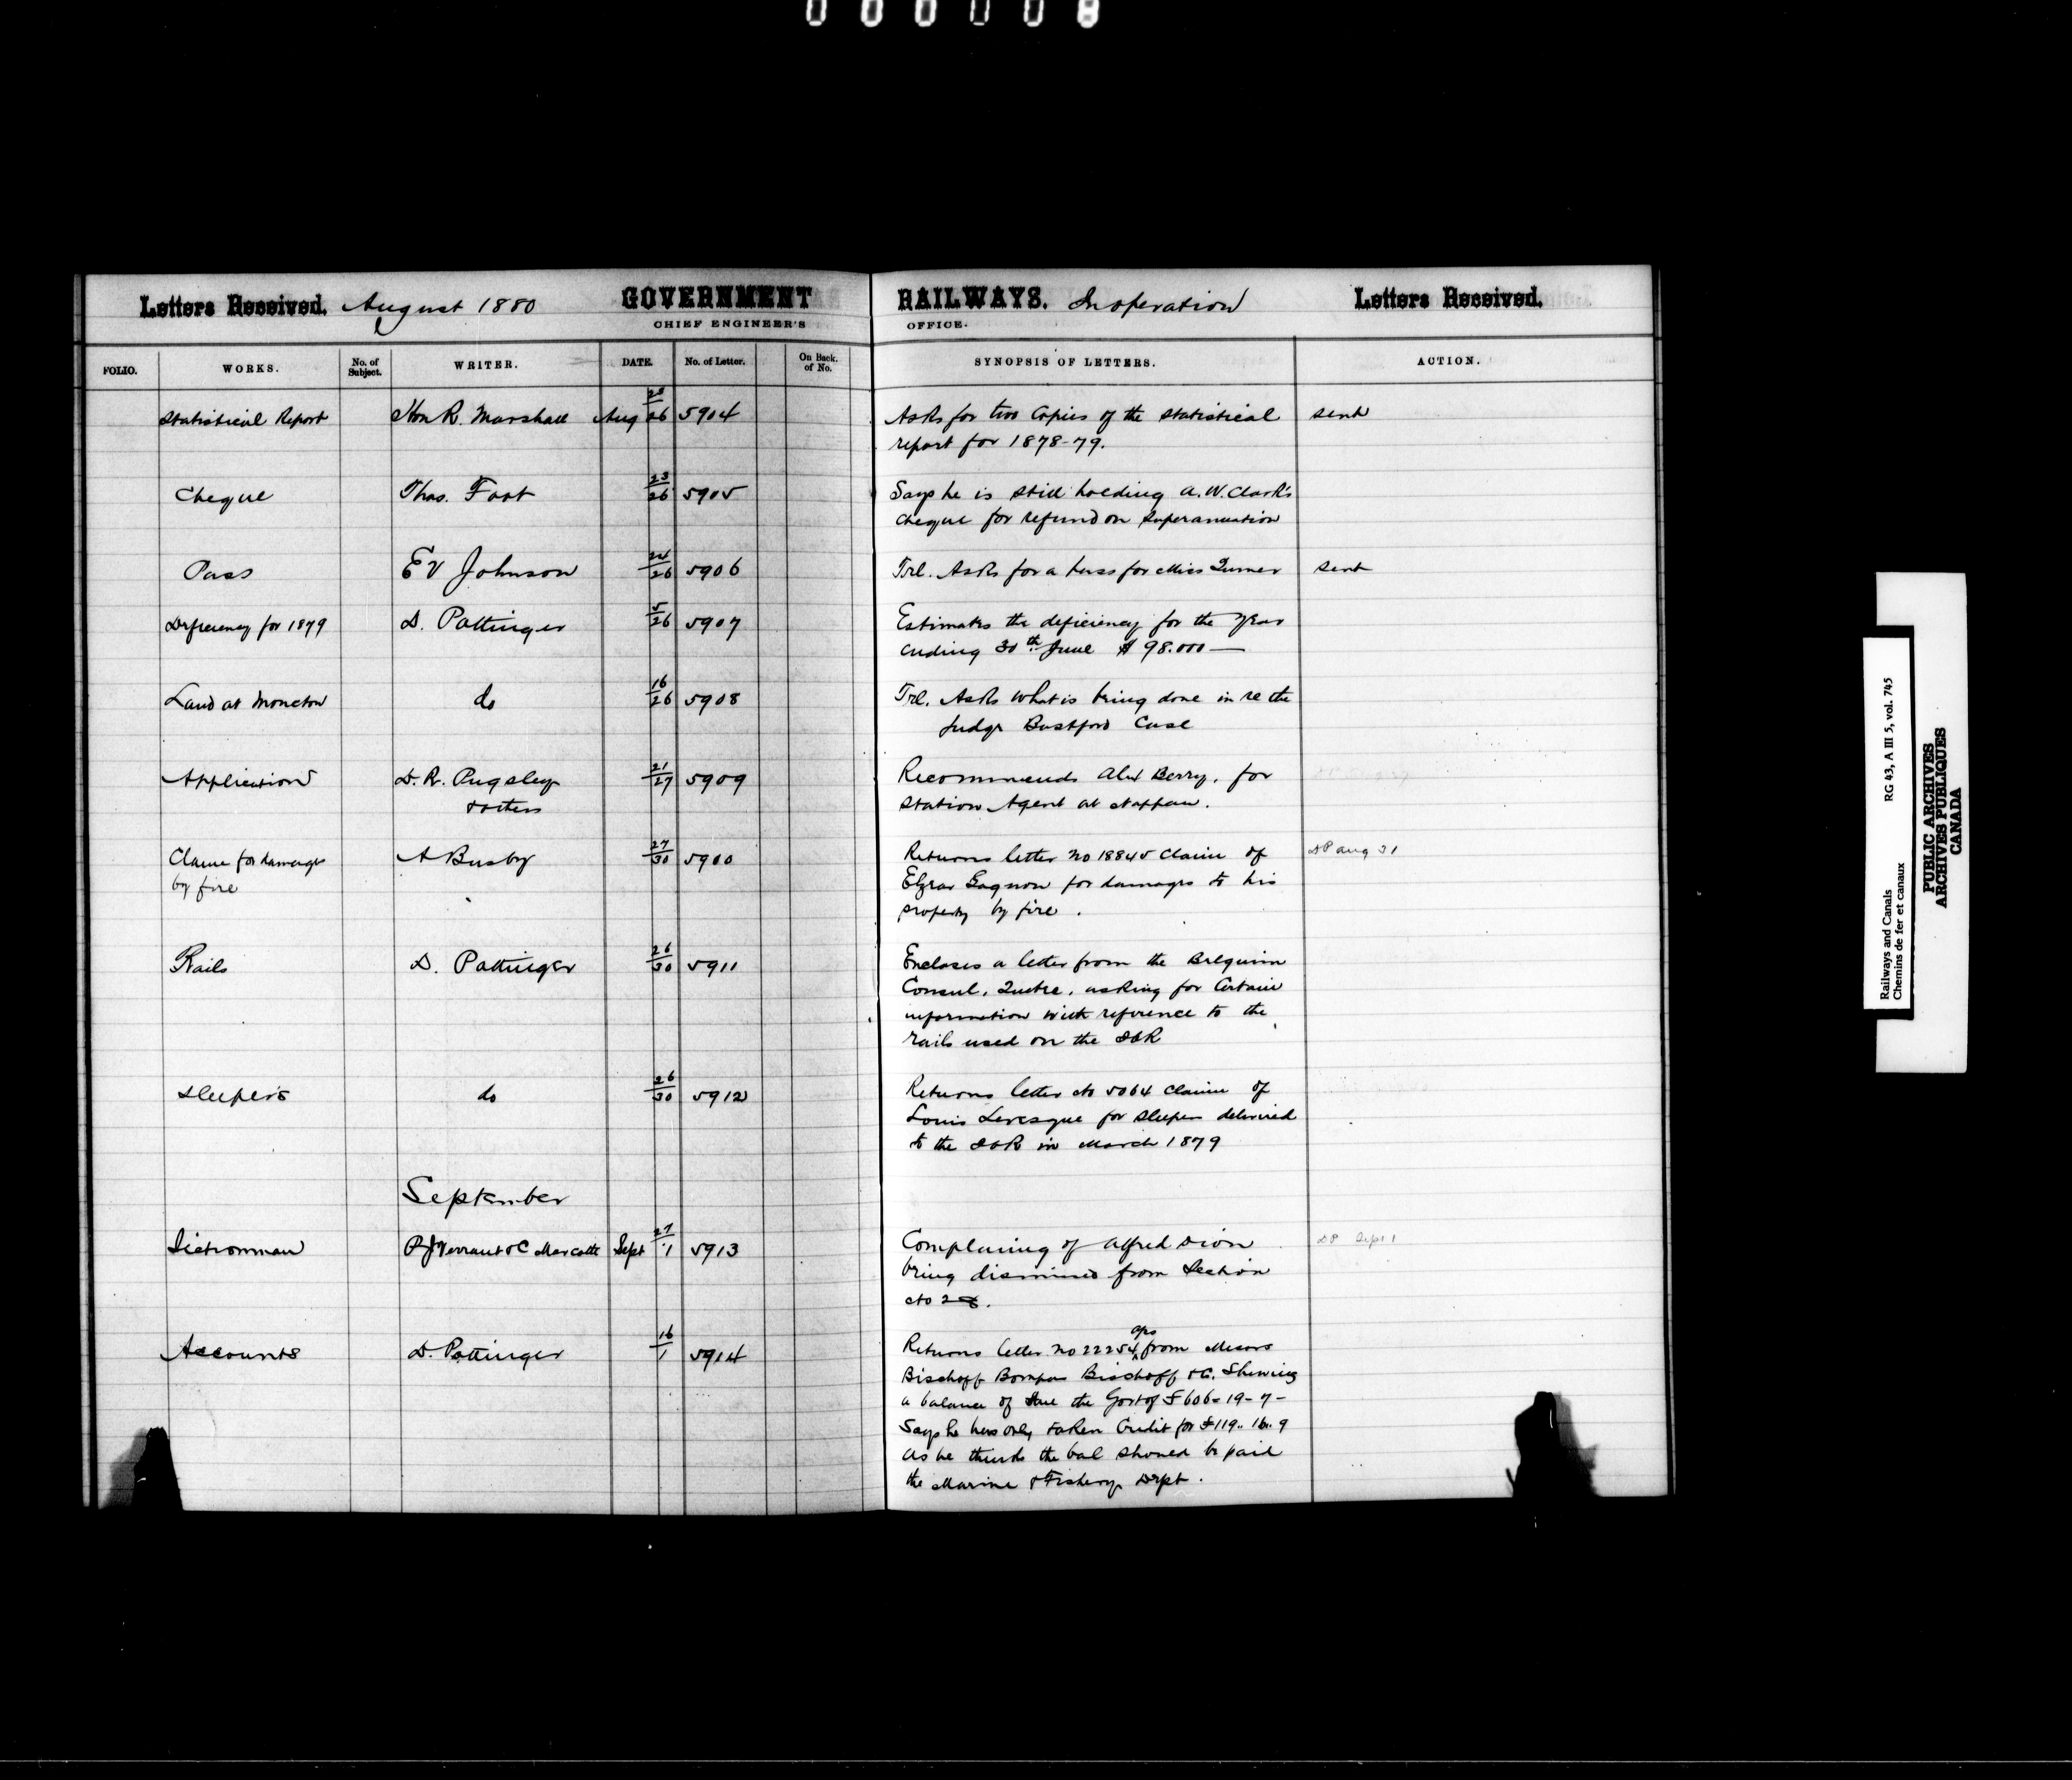 000008
Letters Received. August 1880 GOVERNMENT RAILWAYS. In operation Letters Received.
CHIEF ENGINEER'S OFFICE.
FOLIO. WORKS. No. of Subject. WRITER. DATE. No. of Letter. On Back. of No. SYNOPSIS OF LETTERS. ACTION.
Statistical Report Hon R. Marshall Aug 26 5904 Asks for two Copies of the statistical sent
report for 1878-79.
Cheque Thos. Foot 23/26 5905 Says he is still holding A. W. Clark's
cheque for refund on Superanuation
Pass E V Johnson 24/26 5906 Tel. Asks for a pass for Miss Turner sent
Deficiency for 1879 D. Pottinger 5/26 5907 Estimates the deficiency for the year
ending 30th June $98.000 —
Land at Moncton do 16/26 5908 Tel. Asks what is being done in re the
Judge Case
Application D. R. Pugsley 21/27 5909 Recommends Alex Berry, for
& others Station Agent at Nappan.
Claim for damages A Busby 27/30 5910 Returns letter no 18845 Claim of DP Aug 31
by fire Elzear Gagnon for damages to his
property by fire.
Rails D. Pottinger 26/30 5911 Encloses a letter from the Belgium
Consul, Quebec, asking for Certain
information with reference to the
rails used on the ICR
Sleepers do 26/30 5912 Returns letter No 5064 Claim of
Louis Levesque for sleepers delivered
to the ICR in March 1879
September
C Marcotte Sept 27/1 5913 Complaining of Alfred Dion DP Sept 1
being dismissed from Section
No 28.
Accounts D. Pottinger 16/1 5914 Returns letter no 22254 from Messrs
Bischoff Bompas Bischoff & Co. Shewing
a balance of due the Govt of £606-19-7-
Says he has only taken Credit for £119.. 16.. 9
as he thinks the bal should be paid
the Marine & Fishery Dept.
Railways and Canals RG 43, A III 5, vol. 745
Chemins de fer et canaux
PUBLIC ARCHIVES
ARCHIVES PUBLIQUES
CANADA